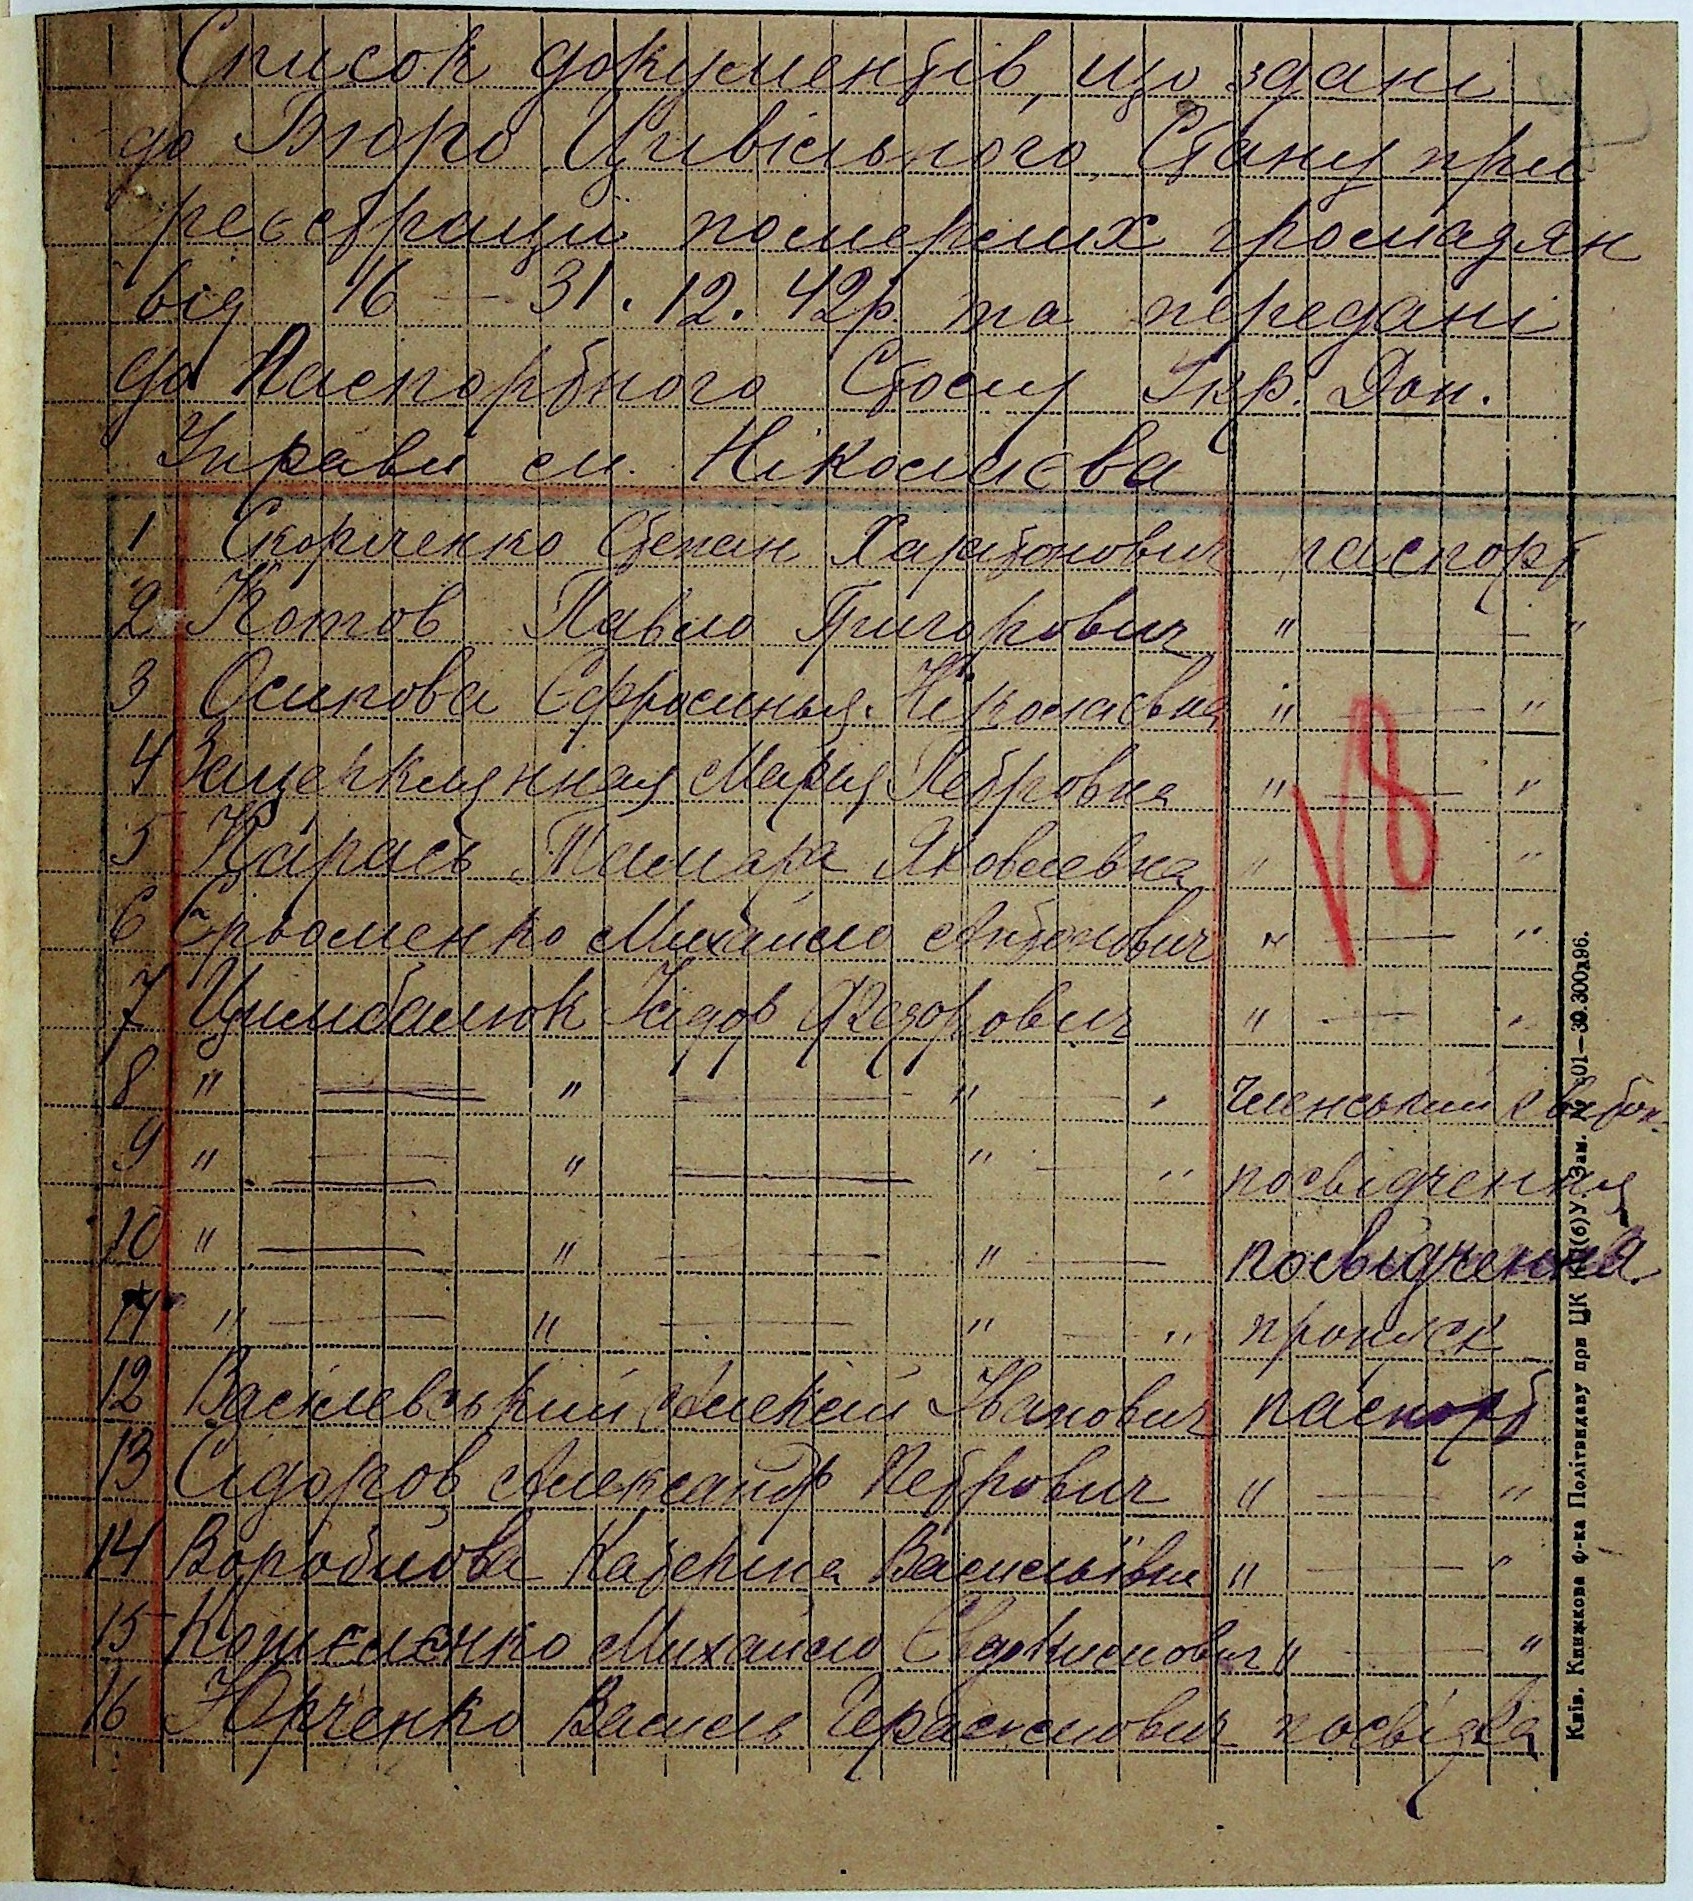 Список документів, що здані
до Бюро Цивільного Стану при
реєстрації померших громадян
від 16 – 31.12.42р. та передані
до Паспортного Столу Укр. Доп.
Управи м. Ніколаєва
1 Скориченко Степан Харитонович паспорт
2 Котов Павло Григорович " — "
3 Осипова Єфросинья Ніколаєвна " — "
4 Зацерклянная Мария Петровна " — "
5 Карась Тамара Яковлевна " — "
6 Єрьоменко Михайло Антонович " — "
7 Цимбалюк Ісідор Федорович " — "
8 " — " — " — " членський квиток
9 " — " — " — " посвідчення
10 " — " — " — посвідчення
11 " — " — " — " пропуск
12 Васілевський Алексій Іванович паспорт
13 Сідоров Александр Петрович " — "
14 Воробйова Катерина Васильівна " — "
15 Кошеленко Михайло Євдокимович " — "
16 Юрченко Василь Герасимович посвідка
18
Київ. Книжкова ф-ка Політвидаву при ЦК КП(б)У Зам. № 301—30.300х96.